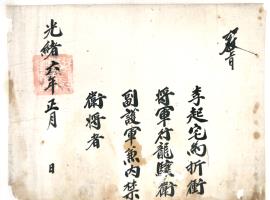 教旨
李起宅為折衝
將軍行龍驤衛
副護軍兼内禁
衛將者
光緒六年正月　日